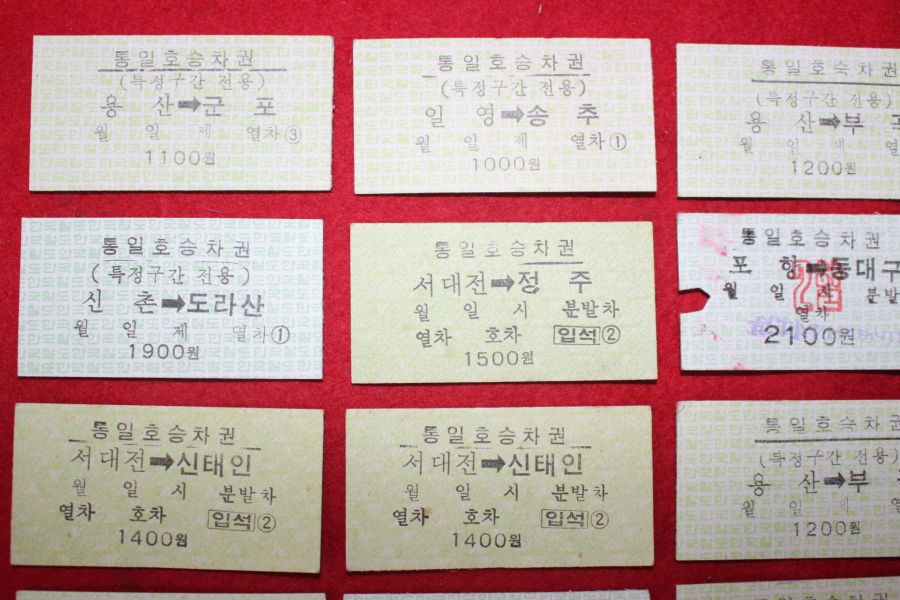 통일호승차권
(특정구간 전용)
용 산➡군 포
월 일 제 열차③
1100원
통일호승차권
(특정구간 전용)
일 영➡송 추
월 일 제 열차①
1000원
통일호승차권
(특정구간 전용)
용 산➡부
월 일 제
1200원
통일호승차권
(특정구간 전용)
신 촌➡도라산
월 일 제 열차①
1900원
통일호승차권
서대전➡정 주
월 일 시 분발차
열차 호차 입석②
1500원
통일호승차권
포 항➡동대구
월 일 시 분발
열차
2100원
통일호승차권
서대전➡신태인
월 일 시 분발차
열차 호차 입석②
1400원
통일호승차권
서대전➡신태인
월 일 시 분발차
열차 호차 입석②
1400원
통일호승차권
(특정구간 전용)
용 산➡부
월 일 제
1200원